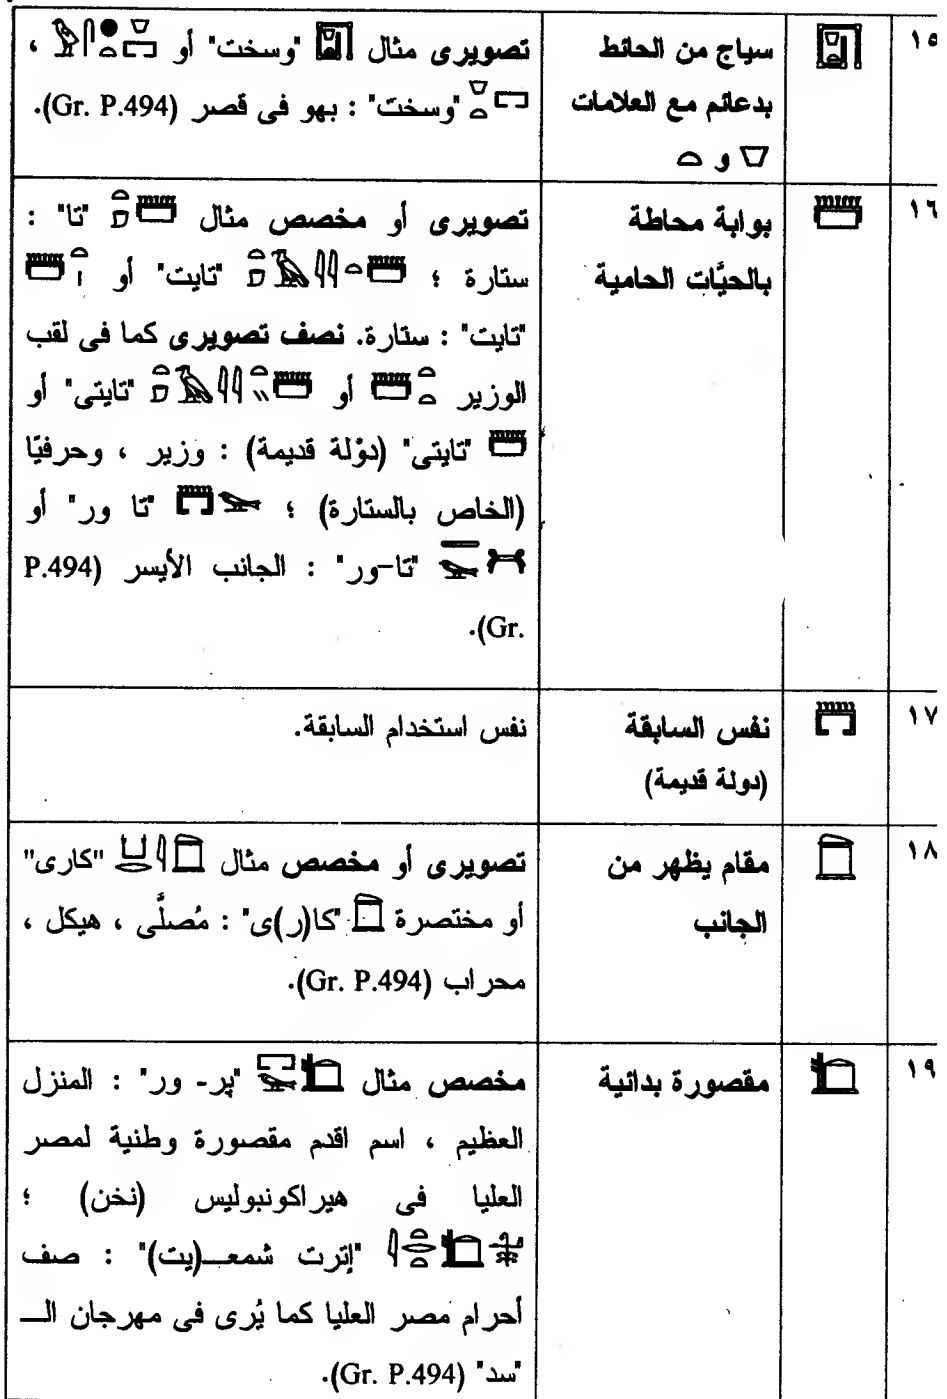 ١٥
سياج من الحائط
بدعائم مع العلامات
و
تصويرى مثال "وسخت" أو ،
"وسخت" : بهو فى قصر (Gr. P.494).
١٦
بوابة محاطة
بالحيَّات الحامية
تصويرى أو مخصص مثال "تا" :
ستارة ؛ "تايت" أو
"تايت" : ستارة. نصف تصويرى كما فى لقب
الوزير أو "تايتى" أو
"تايتى" (دوْلة قديمة) : وزير ، وحرفيًا
(الخاص بالستارة) ؛ "تا ور" أو
"تا-ور" : الجانب الأيسر (P.494
Gr.).
١٧
نفس السابقة
(دولة قديمة)
نفس استخدام السابقة.
١٨
مقام يظهر من
الجانب
تصويرى أو مخصص مثال "كارى"
أو مختصرة "كا(ر)ى" : مُصلَّى ، هيكل ،
محراب (Gr. P.494).
١٩
مقصورة بدائية
مخصص مثال "پر- ور" : المنزل
العظيم ، اسم اقدم مقصورة وطنية لمصر
العليا فى هيراكونبوليس (نخن) ؛
"إترت شمعـ(يت)" : صف
أحرام مصر العليا كما يُرى فى مهرجان الـ
"سد" (Gr. P.494).